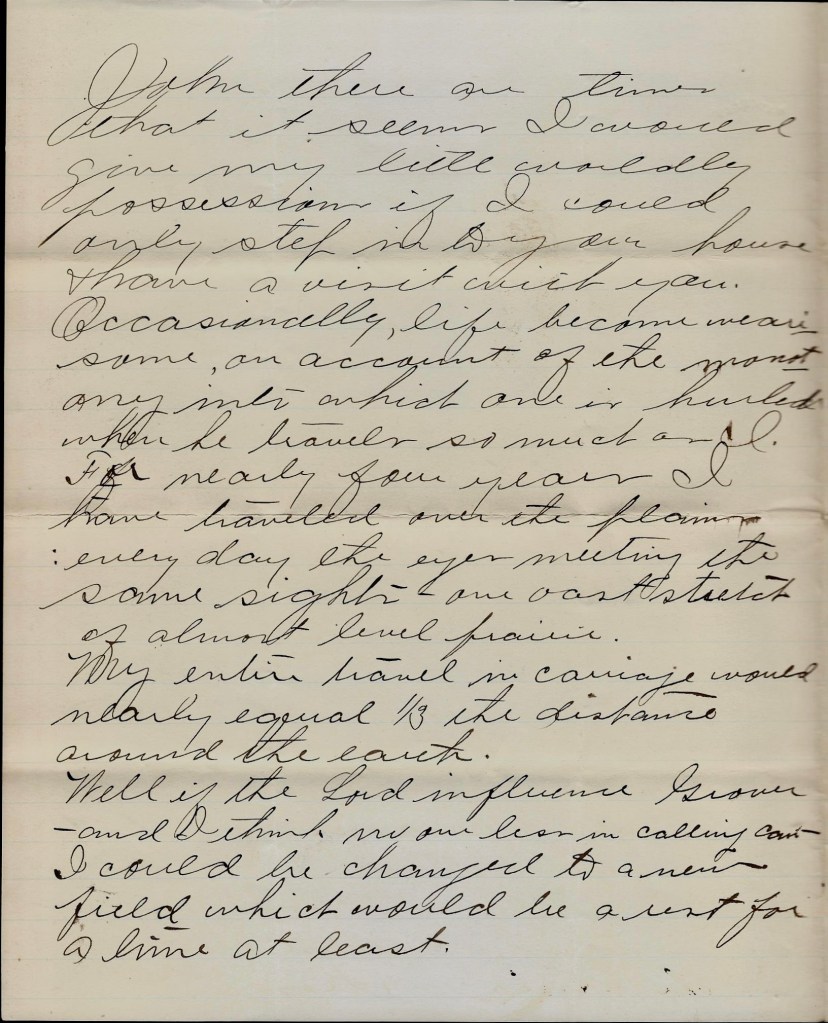 John there are times
that it seems I would
give my little worldly
possessions if I could
only step in to your house
& have a visit with you.
Occasionally, life become weari
some, on account of the monot
ony into which one is hurled
when he travels so much as I.
For nearly four years I
have traveled over the plains
every day the eyes meeting the
same sights - one vast stretch
of almost level prairie.
My entire travel in carriage would
nearly equal 1/3 the distance
around the earth.
Well if the Lord influence Grover
- and I think no one less in calling can -
I could be changed to a new
field which would be a rest for
a time at least.